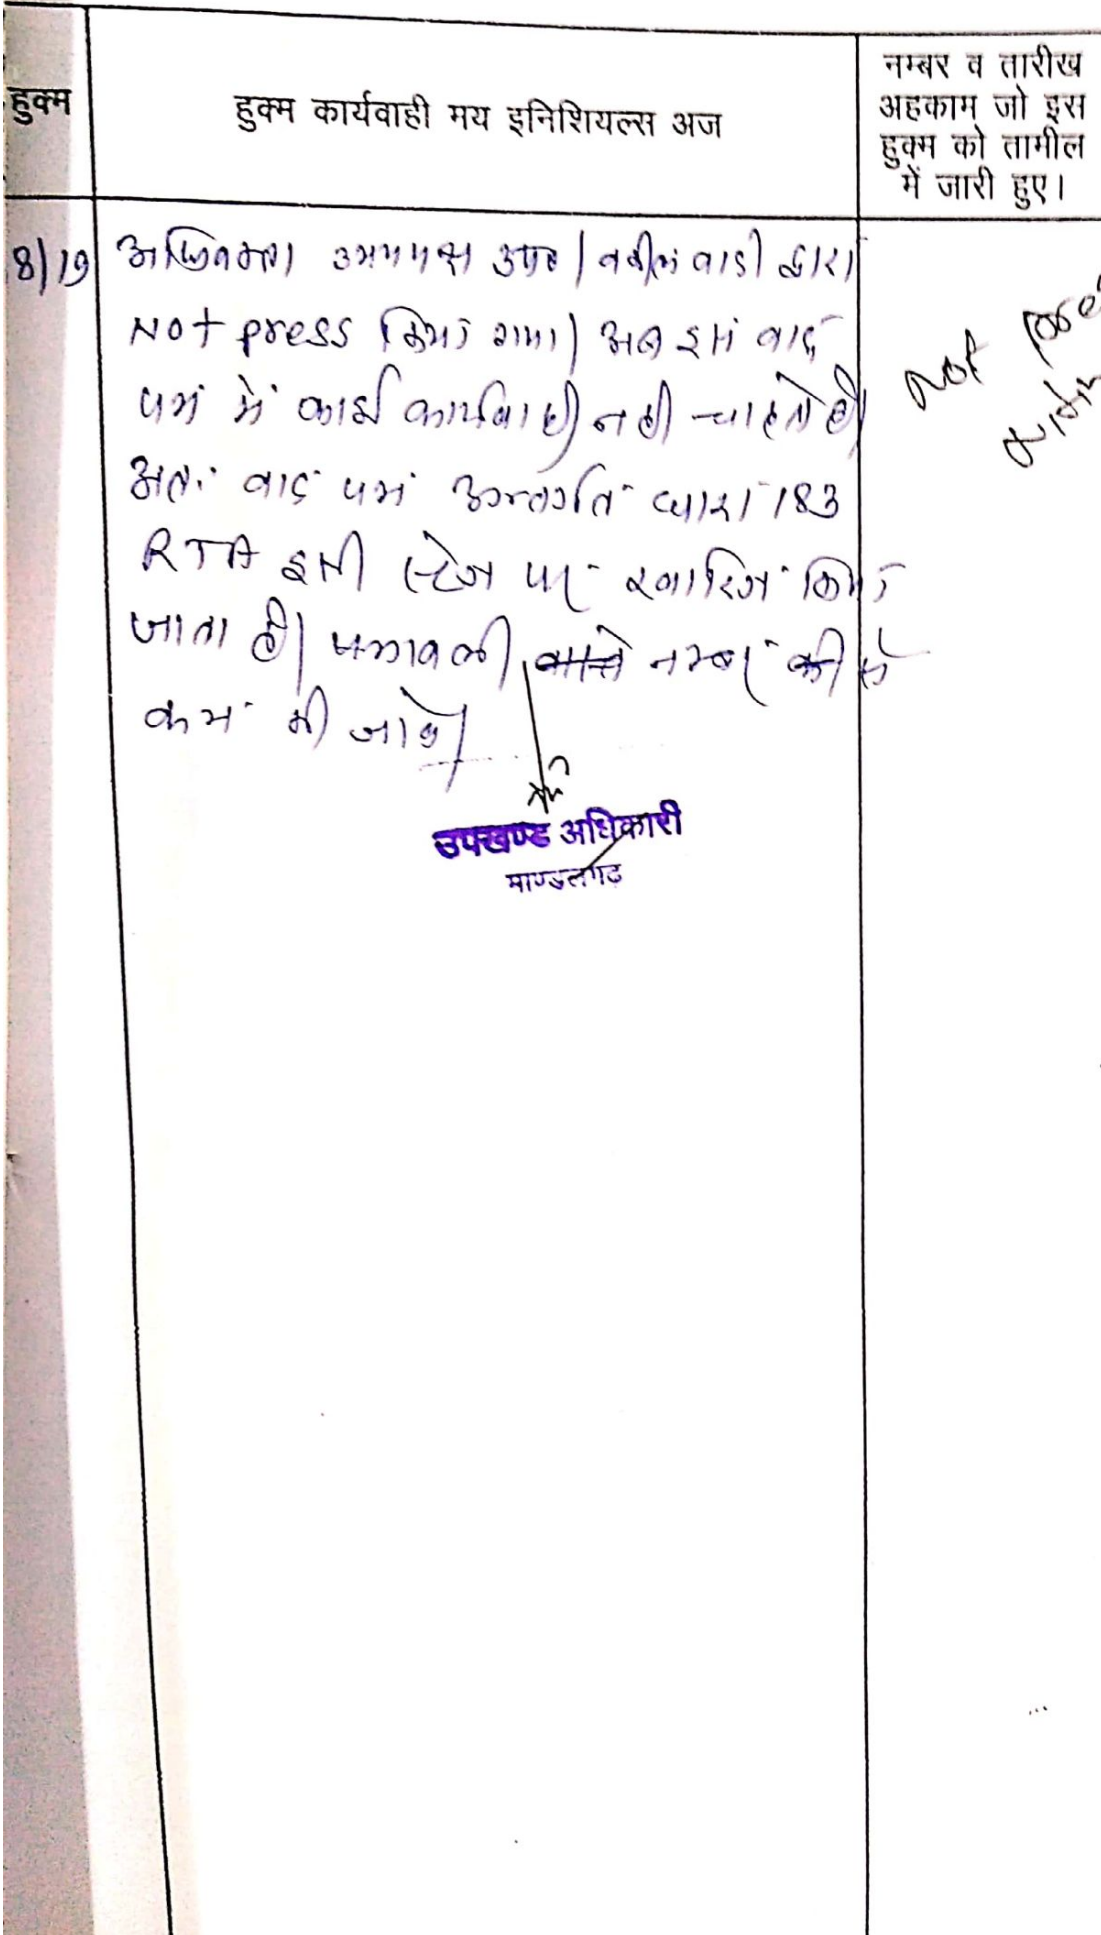 हुक्म
हुक्म कार्यवाही मय इनिशियल्स अज
नम्बर व तारीख
अहकाम जो इस
हुक्म को तामील
में जारी हुए।
8/19
अधिवक्ता उभयपक्ष उप० । वकील वादी द्वारा
Not press किया गया। अब इस वाद
पत्र में कोई कार्यवाही नही चाहते है।
अतः वाद पत्र अन्तर्गत धारा 183
RTA इसी स्टेज पर खारिज किया
जाता है। पत्रावली नम्बर से
कम की जावे।
Not
उपखण्ड अधिकारी
माण्डलगढ़